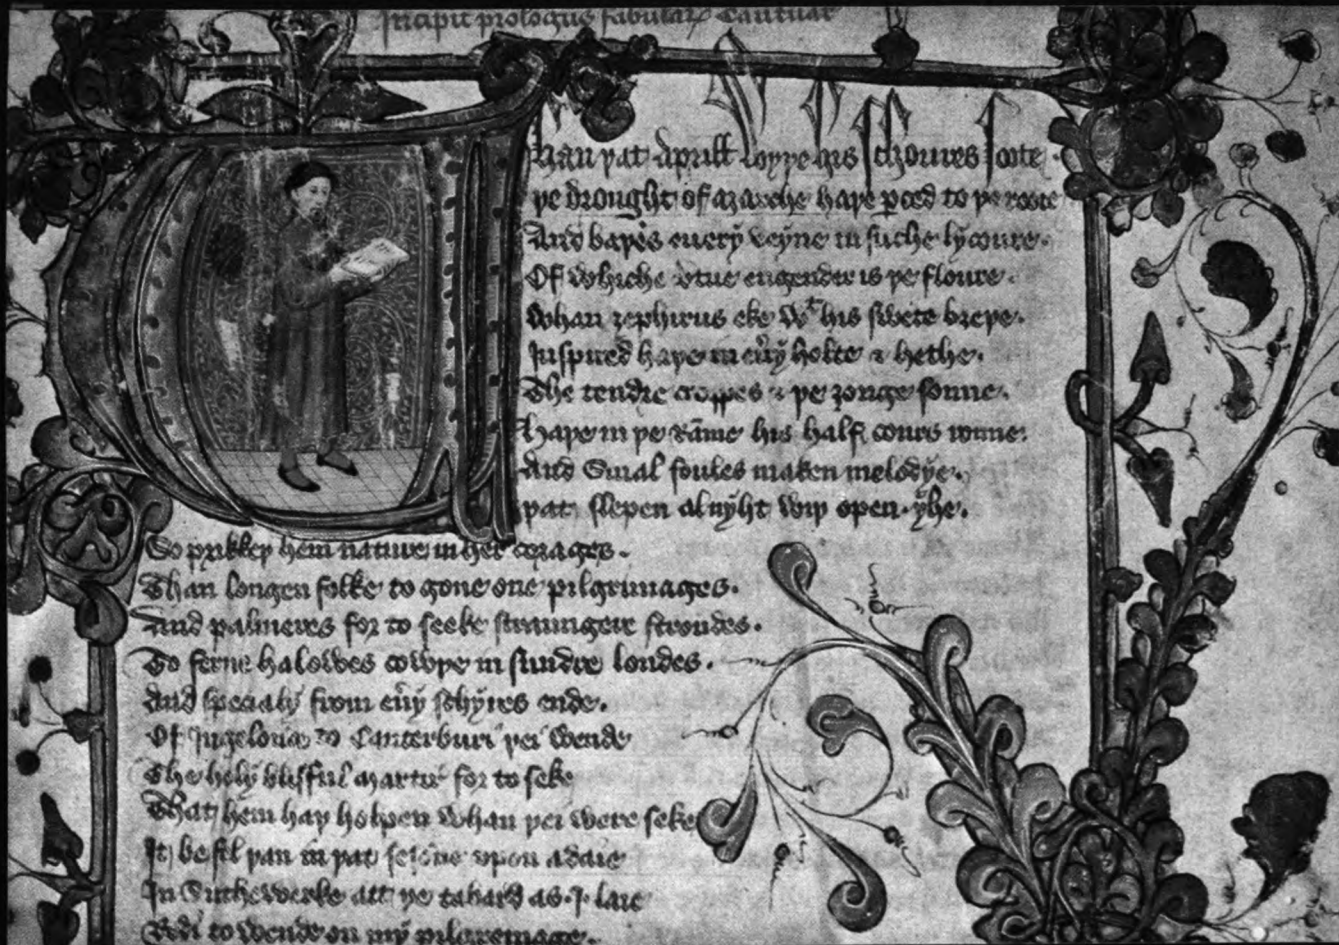 Incipit prologus fabularum Cantuar
Whan þat Aprill wyþ his schoures soote
þe drought of marche haþe perced to þe roote
And baþes euery veyne in suche lycoure
Of whiche vtue engender is þe floure
Whan zephirus eke wt his swete breþe
Inspired haþe in euy holte & hethe
The tendre croppes & þe ȝonge sonne
haþe in þe Rāme his half cours ronne
And Smal foules maken melodye
þat slepen al nyht wiþ open yhe
So prikkeþ hem nature in her corages
Than longen folke to gone one pilgrimages
And palmeres for to seeke straungere strondes
To ferne halowes cowþe in sundre londes
And specialy from euy schyres ende
Of Ingelond to Canterburi þei wende
The holy blisful martir for to seke
That hem haþ holpen whan þei were seke
It befil þan in þat sesoue vpon a daie
In Suthewerke att þe tabard as I laie
Redi to wende on my pilgremage